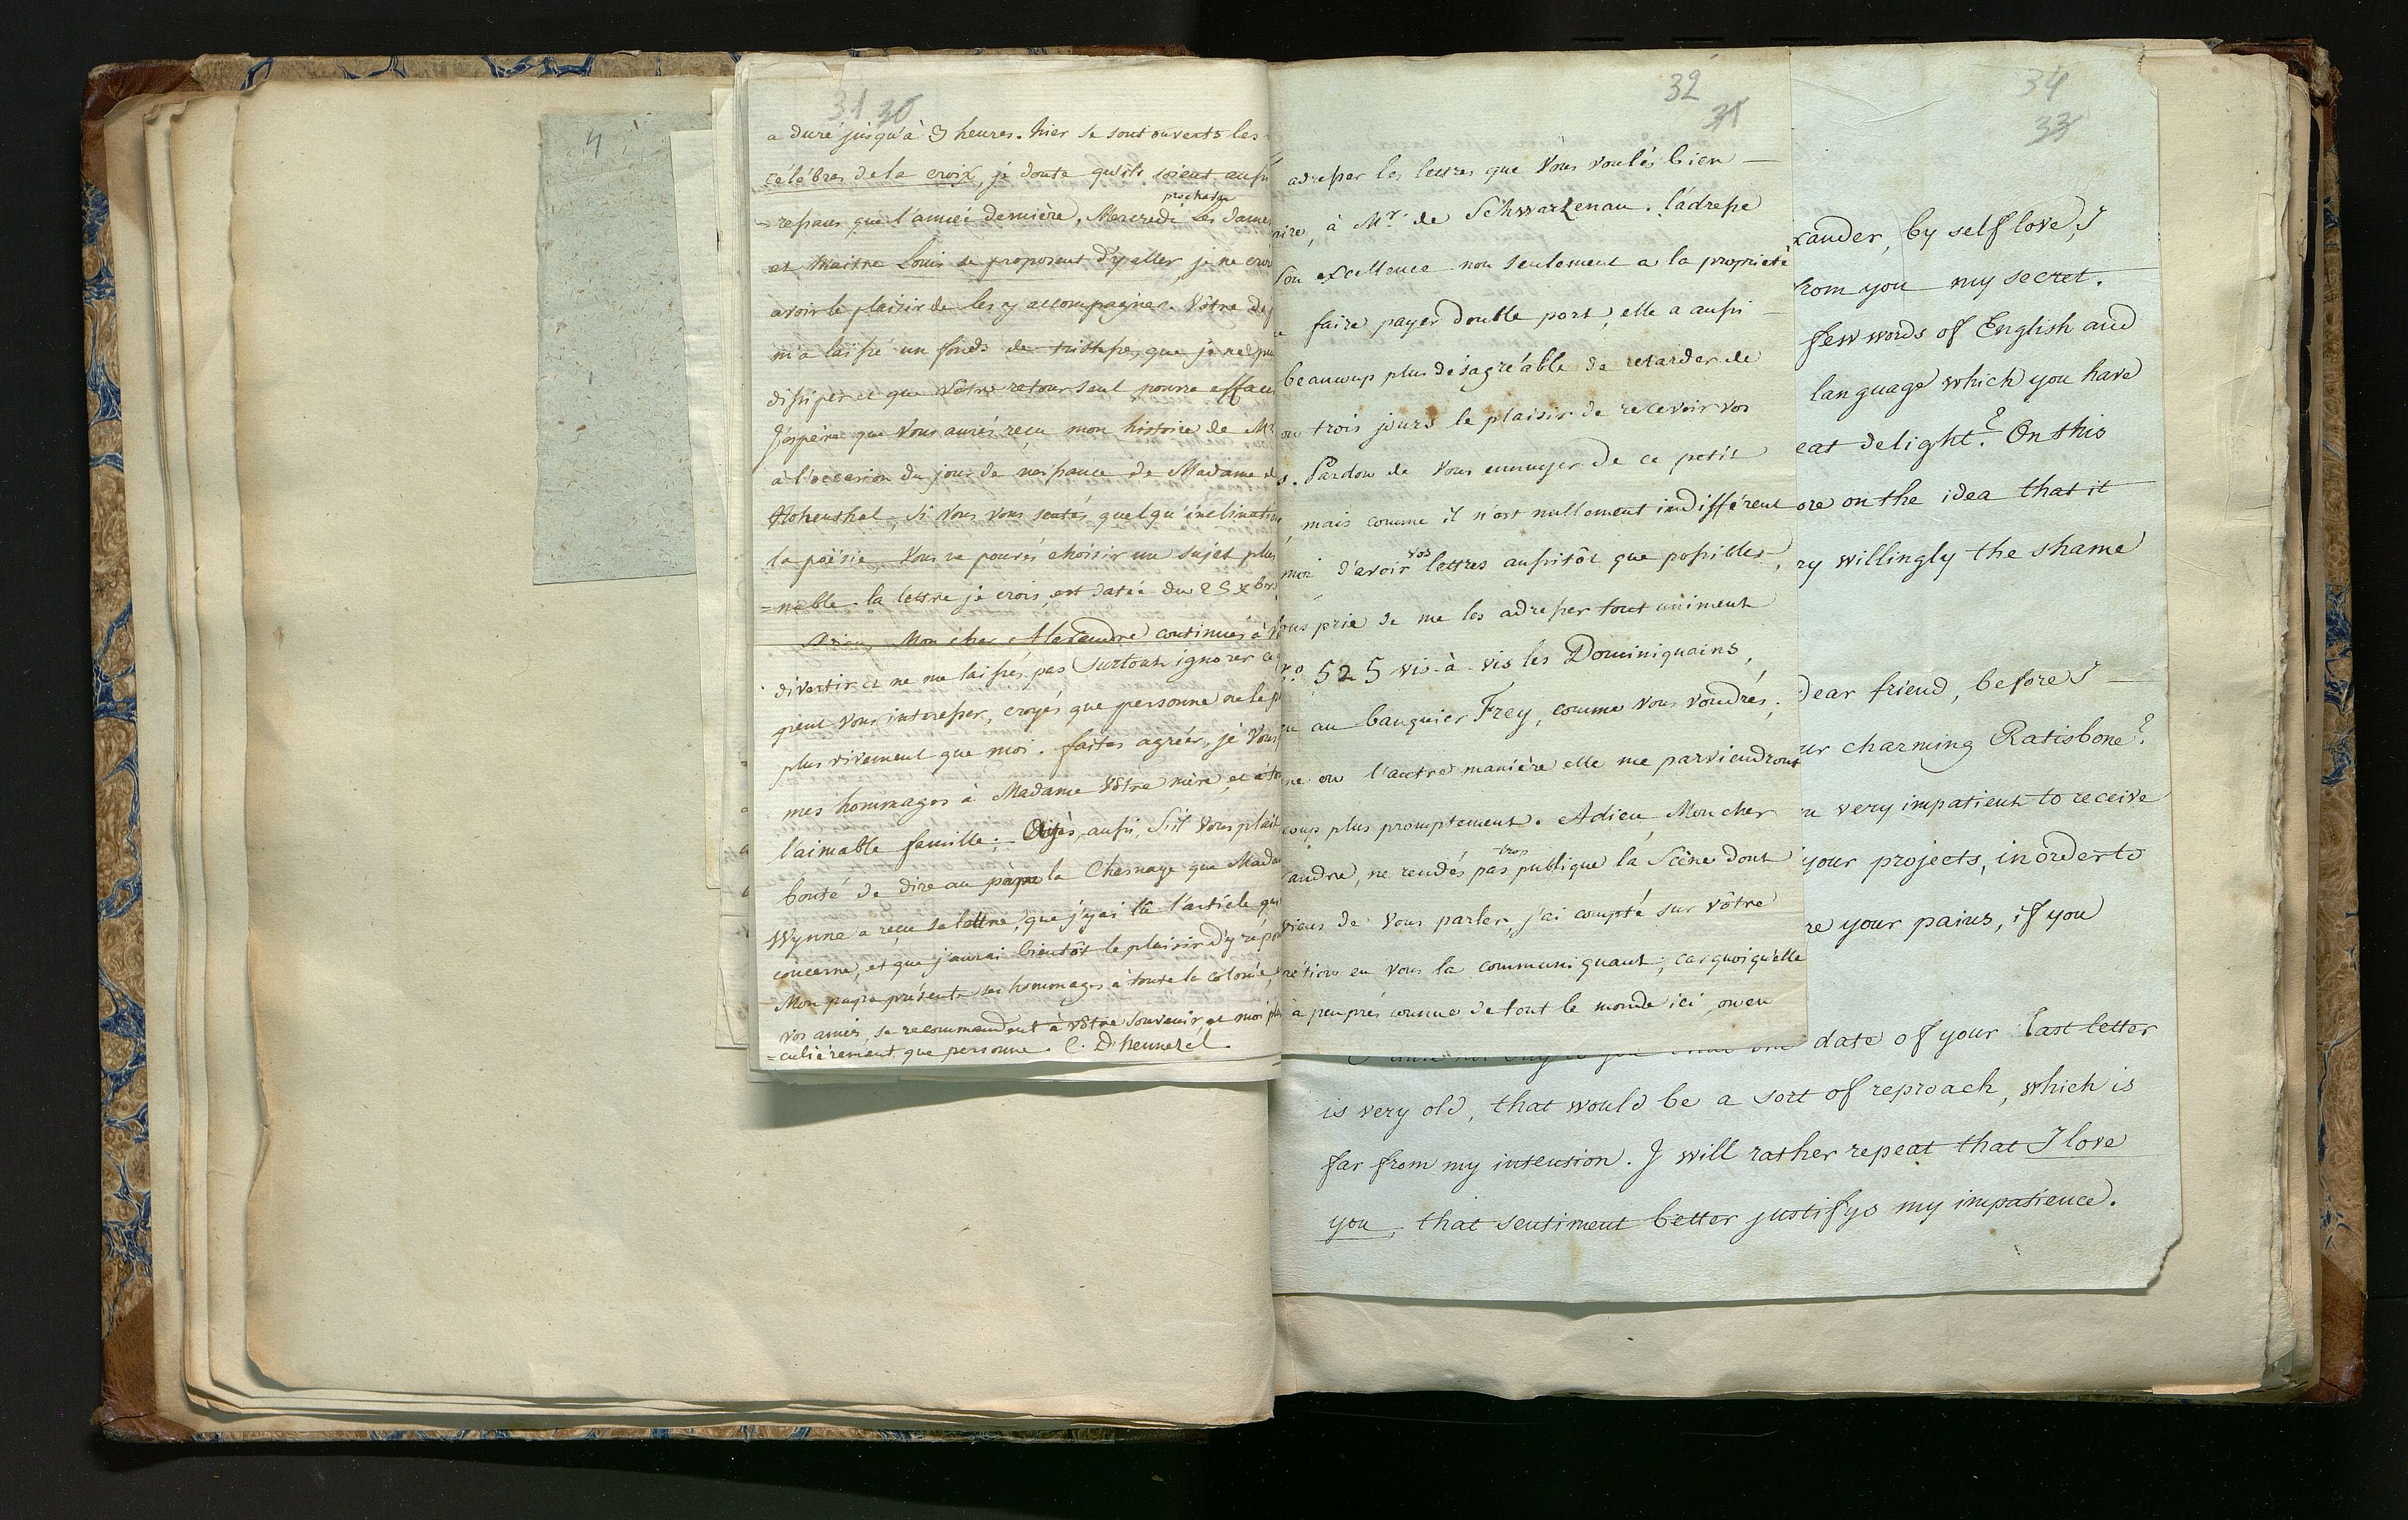 4
31 30
a duré jusqu'à 9 heures. hier se sont ouverts les
célébres de la croix, je doute qu'ils soient aussi
prochain
=ressans que l'année dernière. Mercredi les Dames
et Maitre Louis se proposent d'y aller, je ne crois
avoir le plaisir de les y accompagner. Vôtre dép
m'a laissé un fonds de tristesse, que je ne pui
dissiper et que vôtre retour seul pourra effacer
J'espére que Vous aurés reçu mon histoire de Mr
à l'occasion du jour de naissance de Madame de
Hohenthal. Si Vous vous sentés quelqu'inclination
la poësie Vous ne pouvés choisir un sujet plus
=nable. la lettre je crois, est datée du 25 xbre
Adieu, Mon cher Alexandre continués à V
divertir et ne me laissés pas surtout ignorer ce q
peut vous intéresser, croyés que personne ne le p
plus vivement que moi. faites agréer, je Vous
mes hommages à Madame Vôtre mère, et à to
l'aimable famille; Ayés, aussi, s'il Vous plait
bonté de dire au papa la Chesnaye que Mada
Wynne a reçu sa lettre, que j'y ai lû l'article qui
concerne, et que j'aurai bientôt le plaisir d'y répon
Mon papa présente ses hommages à toute la colonie,
vos amies, se recommandent à vôtre souvenir, et moi plu
=culiérement que personne. C. D'hennezel.
32
31
adresser les lettres que Vous voulés bien
rire, à Mr. de Schwarzenau. l'adresse
Son excellence non seulement a la proprieté
faire payer double port, elle a aussi
beaucoup plus désagréable de retarder de
ou trois jours le plaisir de recevoir vos
s. Pardon de Vous ennuyer de ce petit
, mais comme il n'est nullement indifférent
vos
moi d'avoir lettres aussitôt que possible,
ous prie de me les adresser tout uniment
ro. 525 vis-à-vis les Dominiquains,
au banquier Frey, comme vous voudrés;
ne ou l'autre manière elle me parviendront
coup plus promptement. Adieu Mon cher
trop
andre, ne rendés pas publique la Scène dont
viens de Vous parler, j'ai compté sur vôtre
rétion en Vous la communiquant, car quoiqu'elle
à peu près connue de tout le monde ici, on en
34
33
xander, by self love, I
rom you my secret.
few words of English and
language which you have
eat delight? On this
ore on the idea that it
ry willingly the shame
Dear friend, before I
ur charming Ratisbone?
m very impatient to receive
your projects, in order to
re your pains, if you
date of your last letter
is very old, that would be a sort of reproach, which is
far from my intension. I will rather repeat that I love
you, that sentiment better justifys my impatience.